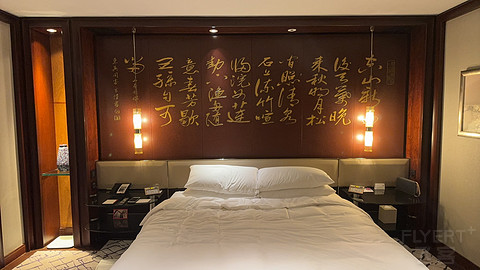 空山新雨
後天氣晚
來秋明月松
間照清泉
石上流竹喧
歸浣女蓮
動下漁舟隨
意春芳歇
王孫自可
留
FLYERT